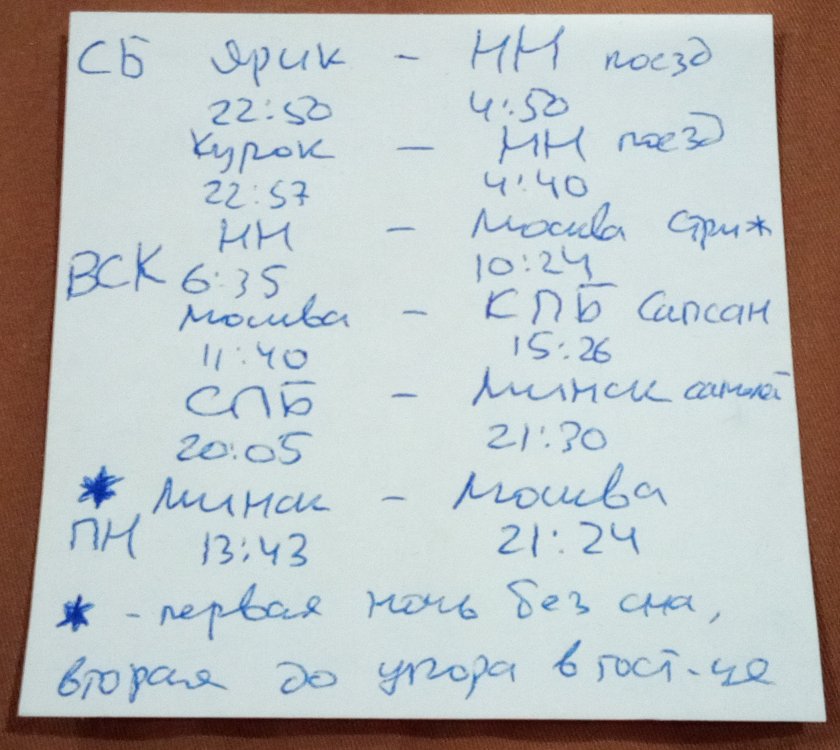 СБ Ярик - НН поезд
22:50 4:50
Курок - НН поезд
22:57 4:40
НН - Москва Стриж
ВСК 6:35 10:24
Москва - СПБ Сапсан
11:40 15:26
СПБ - Минск самолёт
20:05 21:30
* Минск - Москва
ПН 13:43 21:24
* - первая ночь без сна,
вторая до упора в гост-це